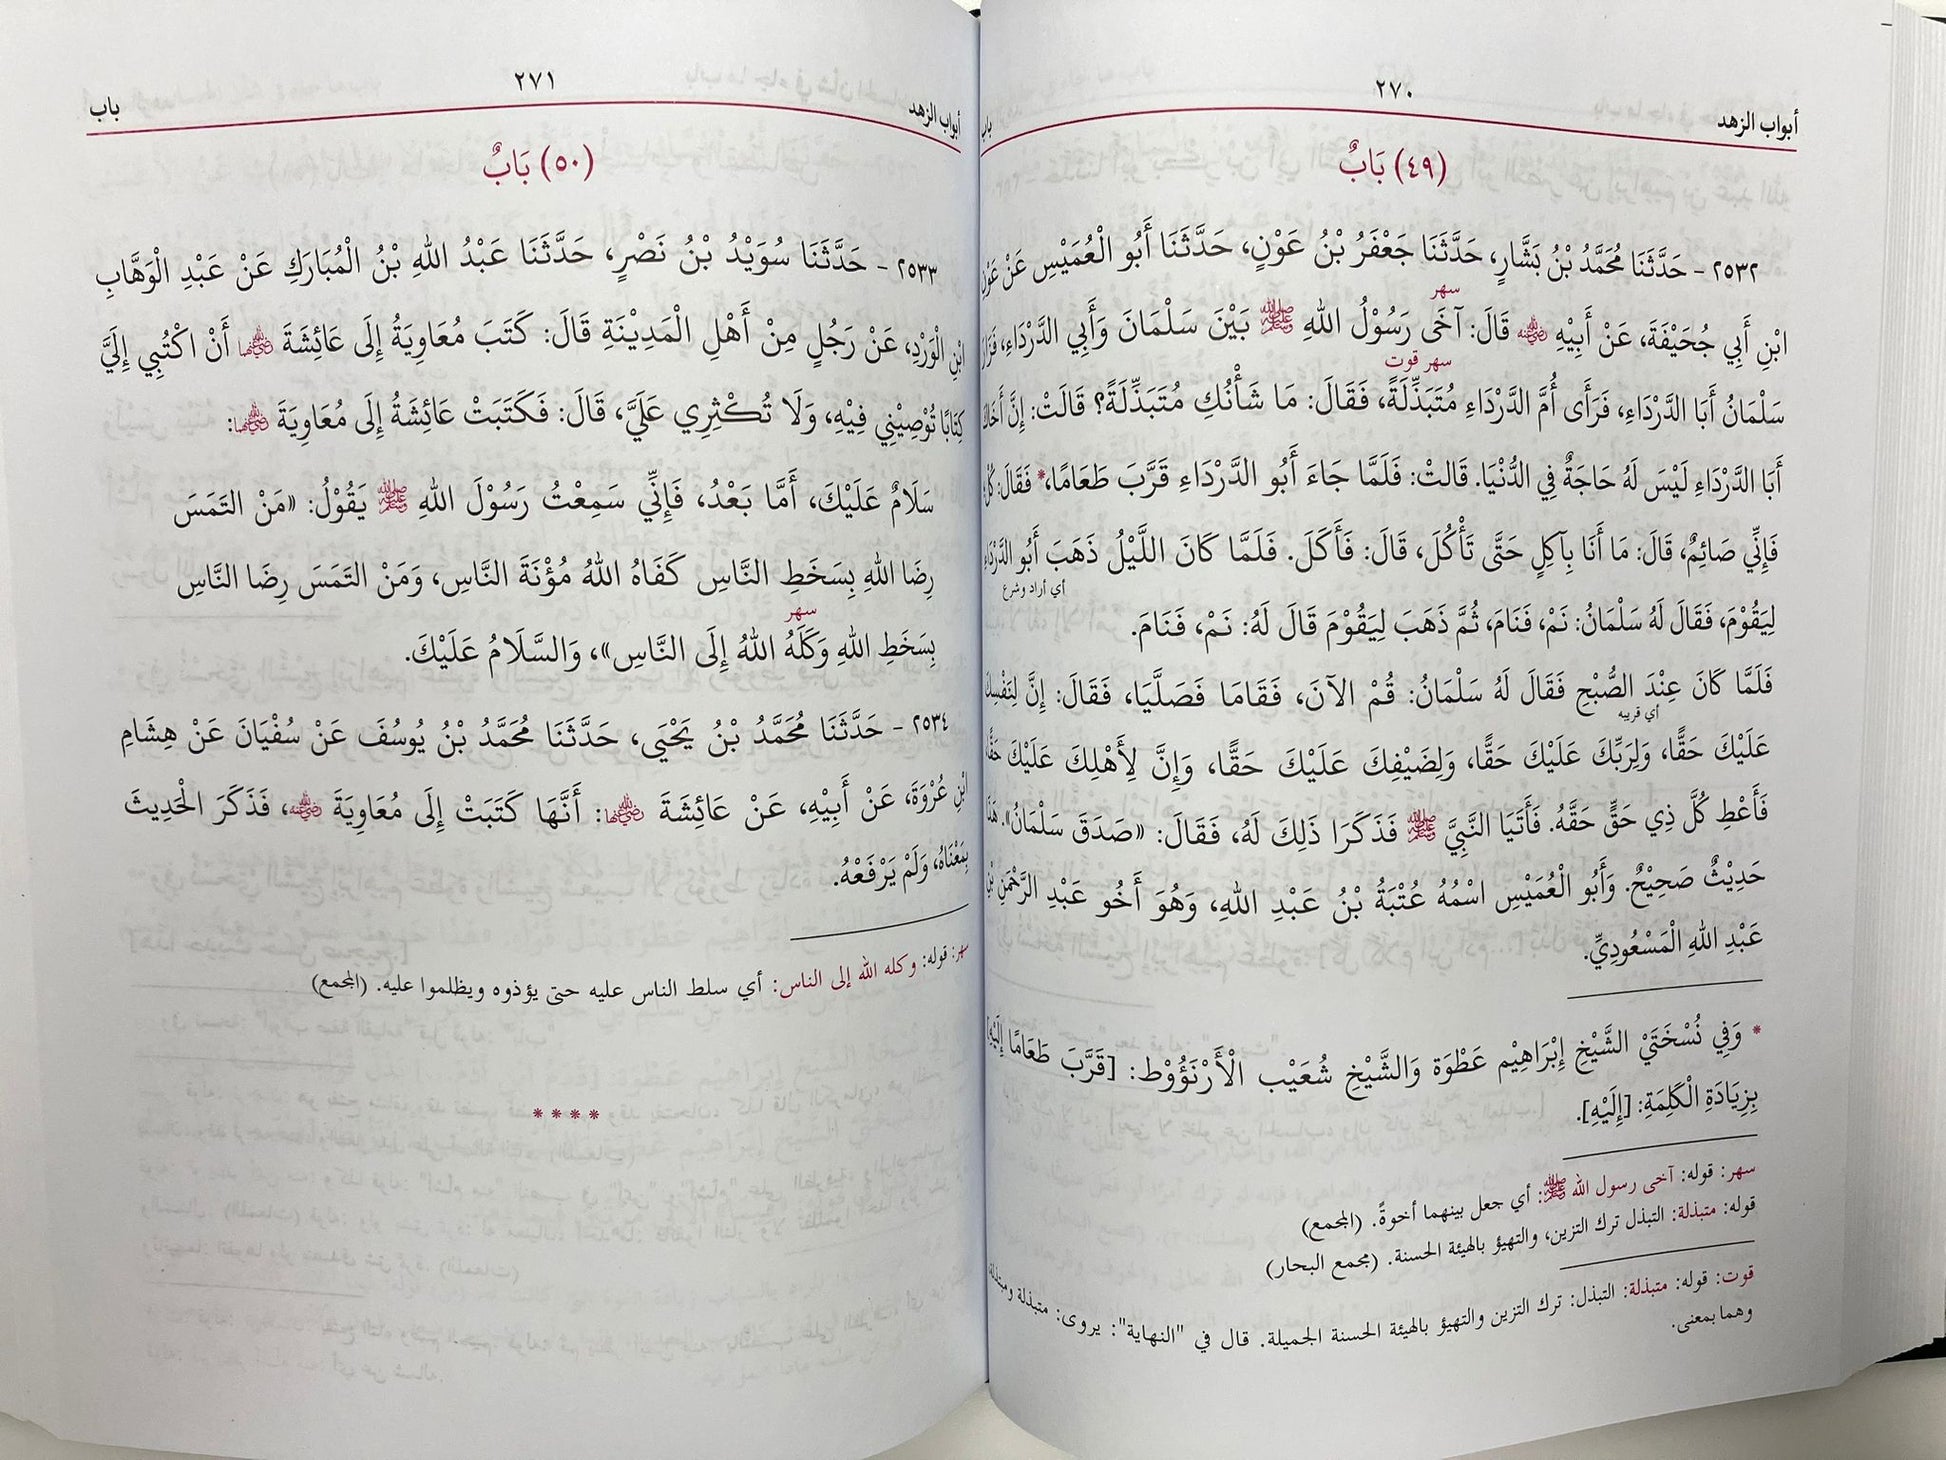 ٢٧٠
أبواب الزهد باب
(٤٩) بَابٌ
٢٥٣٢ - حَدَّثَنَا مُحَمَّدُ بْنُ بَشَّارٍ، حَدَّثَنَا جَعْفَرُ بْنُ عَوْنٍ، حَدَّثَنَا أَبُو الْعُمَيْسِ عَنْ عَوْنِ
سهر
ابْنِ أَبِي جُحَيْفَةَ، عَنْ أَبِيْهِ ﷺ قَالَ: آخَى رَسُوْلُ اللهِ ﷺ بَيْنَ سَلْمَانَ وَأَبِي الدَّرْدَاءِ، فَزَارَ
سهر قوت
سَلْمَانُ أَبَا الدَّرْدَاءِ، فَرَأَى أُمَّ الدَّرْدَاءِ مُتَبَذِّلَةً، فَقَالَ: مَا شَأْنُكِ مُتَبَذِّلَةً؟ قَالَتْ: إِنَّ أَخَاكَ
أَبَا الدَّرْدَاءِ لَيْسَ لَهُ حَاجَةٌ فِي الدُّنْيَا. قَالَتْ: فَلَمَّا جَاءَ أَبُو الدَّرْدَاءِ قَرَّبَ طَعَامًا،* فَقَالَ: كُلْ؛
فَإِنِّي صَائِمٌ، قَالَ: مَا أَنَا بِآكِلٍ حَتَّى تَأْكُلَ، قَالَ: فَأَكَلَ. فَلَمَّا كَانَ اللَّيْلُ ذَهَبَ أَبُو الدَّرْدَاءِ
أي أراد وشرع
لِيَقُوْمَ، فَقَالَ لَهُ سَلْمَانُ: نَمْ، فَنَامَ، ثُمَّ ذَهَبَ لِيَقُوْمَ قَالَ لَهُ: نَمْ، فَنَامَ.
فَلَمَّا كَانَ عِنْدَ الصُّبْحِ فَقَالَ لَهُ سَلْمَانُ: قُمْ الآنَ، فَقَامَا فَصَلَّيَا، فَقَالَ: إِنَّ لِنَفْسِكَ
أي قريبه
عَلَيْكَ حَقًّا، وَلِرَبِّكَ عَلَيْكَ حَقًّا، وَلِضَيْفِكَ عَلَيْكَ حَقًّا، وَإِنَّ لِأَهْلِكَ عَلَيْكَ حَقًّا
فَأَعْطِ كُلَّ ذِي حَقٍّ حَقَّهُ. فَأَتَيَا النَّبِيَّ ﷺ فَذَكَرَا ذَلِكَ لَهُ، فَقَالَ: «صَدَقَ سَلْمَانُ». هَذَا
حَدِيْثٌ صَحِيْحٌ. وَأَبُو الْعُمَيْسِ اسْمُهُ عُتْبَةُ بْنُ عَبْدِ اللهِ، وَهُوَ أَخُو عَبْدِ الرَّحْمَنِ بْنِ
عَبْدِ اللهِ الْمَسْعُودِيِّ.
* وَفِي نُسْخَتَيْ الشَّيْخِ إِبْرَاهِيْم عَطْوَة وَالشَّيْخِ شُعَيْب الْأَرْنَؤُوْط: [قَرَّبَ طَعَامًا إِلَيْهِ]
بِزِيَادَةِ الْكَلِمَةِ: [إِلَيْهِ].
سهر: قوله: آخى رسول الله ﷺ: أي جعل بينهما أخوةً. (المجمع)
قوله: متبذلة: التبذل ترك التزين، والتهيؤ بالهيئة الحسنة. (مجمع البحار)
قوت: قوله: متبذلة: التبذل: ترك التزين والتهيؤ بالهيئة الحسنة الجميلة. قال في "النهاية": يروى: متبذلة ومبتذلة،
وهما بمعنى.
٢٧١
أبواب الزهد باب
(٥٠) بَابٌ
٢٥٣٣ - حَدَّثَنَا سُوَيْدُ بْنُ نَصْرٍ، حَدَّثَنَا عَبْدُ اللهِ بْنُ الْمُبَارَكِ عَنْ عَبْدِ الْوَهَّابِ
ابْنِ الْوَرْدِ، عَنْ رَجُلٍ مِنْ أَهْلِ الْمَدِيْنَةِ قَالَ: كَتَبَ مُعَاوِيَةُ إِلَى عَائِشَةَ رضي الله عنها أَنْ اكْتُبِي إِلَيَّ
كِتَابًا تُوْصِيْنِي فِيْهِ، وَلَا تُكْثِرِي عَلَيَّ، قَالَ: فَكَتَبَتْ عَائِشَةُ إِلَى مُعَاوِيَةَ رضي الله عنهما:
سَلَامٌ عَلَيْكَ، أَمَّا بَعْدُ، فَإِنِّي سَمِعْتُ رَسُوْلَ اللهِ ﷺ يَقُوْلُ: «مَنْ التَمَسَ
رِضَا اللهِ بِسَخَطِ النَّاسِ كَفَاهُ اللهُ مُؤْنَةَ النَّاسِ، وَمَنْ التَمَسَ رِضَا النَّاسِ
سهر
بِسَخَطِ اللهِ وَكَلَهُ اللهُ إِلَى النَّاسِ»، وَالسَّلَامُ عَلَيْكَ.
٢٥٣٤ - حَدَّثَنَا مُحَمَّدُ بْنُ يَحْيَى، حَدَّثَنَا مُحَمَّدُ بْنُ يُوسُفَ عَنْ سُفْيَانَ عَنْ هِشَامِ
ابْنِ عُرْوَةَ، عَنْ أَبِيْهِ، عَنْ عَائِشَةَ رضي الله عنها: أَنَّهَا كَتَبَتْ إِلَى مُعَاوِيَةَ رضي الله عنه، فَذَكَرَ الْحَدِيثَ
بِمَعْنَاهُ، وَلَمْ يَرْفَعْهُ.
سهر: قوله: وكله الله إلى الناس: أي سلط الناس عليه حتى يؤذوه ويظلموا عليه. (المجمع)
* * * *